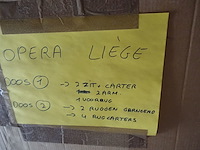 OPERA LIÈGE
DOOS 1 → 2 ZIT + CARTER
2 ARM
1 VOORBUG
DOOS 2 → 2 RUGGEN
→ 4 RUGCARTERS